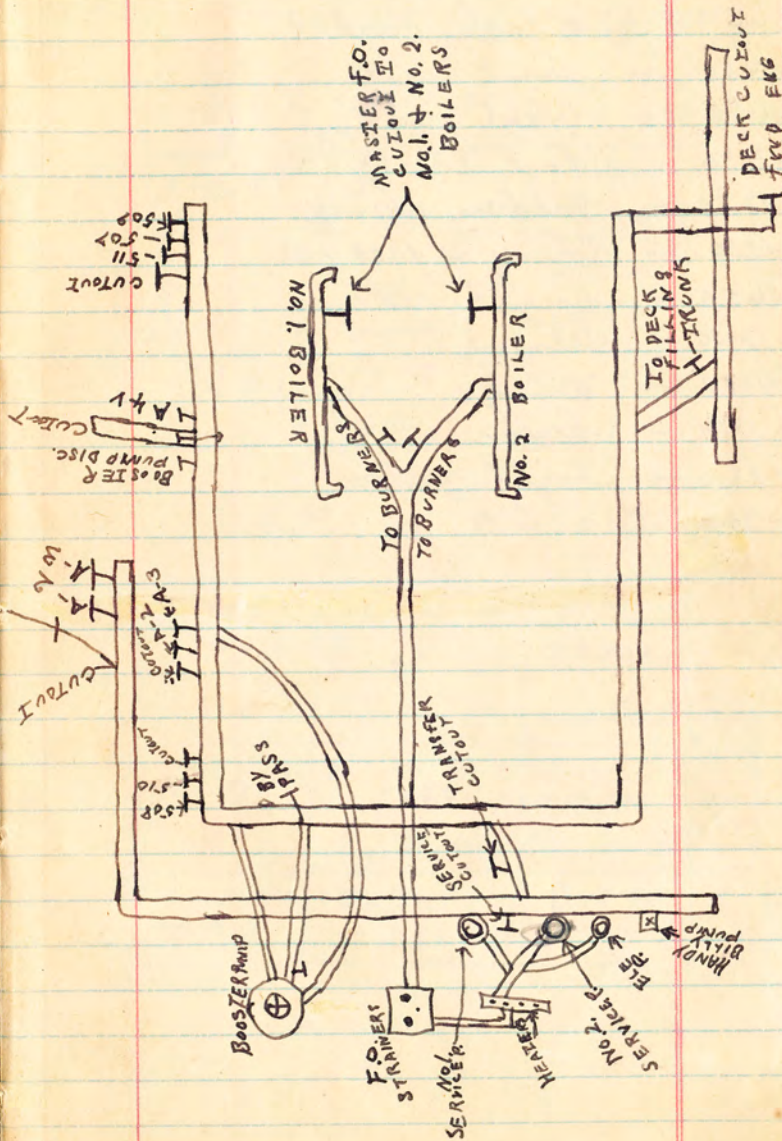 MASTER F.O.
CUTOUT TO
NO.1. + NO.2.
BOILERS
DECK CUTOUT
FWD ENG
509
507
511
CUTOUT
NO.1. BOILER
NO.2 BOILER
TO DECK
FILLING
TRUNK
CUTOUT
A 4-V
BOOSTER
PUMP DISC.
TO BURNERS
TO BURNERS
A-
A-
CUTOUT
CUTOUT
A-2
A-3
CUTOUT
510
508
BY
PASS
SERVICE
CUTOUT
TRANSFER
CUTOUT
BOOSTER PUMP
F.O.
STRAINERS
NO.1
SERVICE P.
HEATER
NO.2.
SERVICE P.
ELE P.
HANDY
BILLY
PUMP